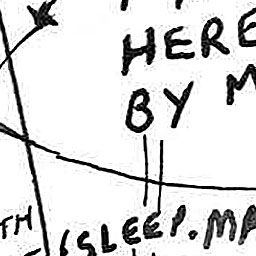 HERE
BY M
TH
(SLEEP. MA